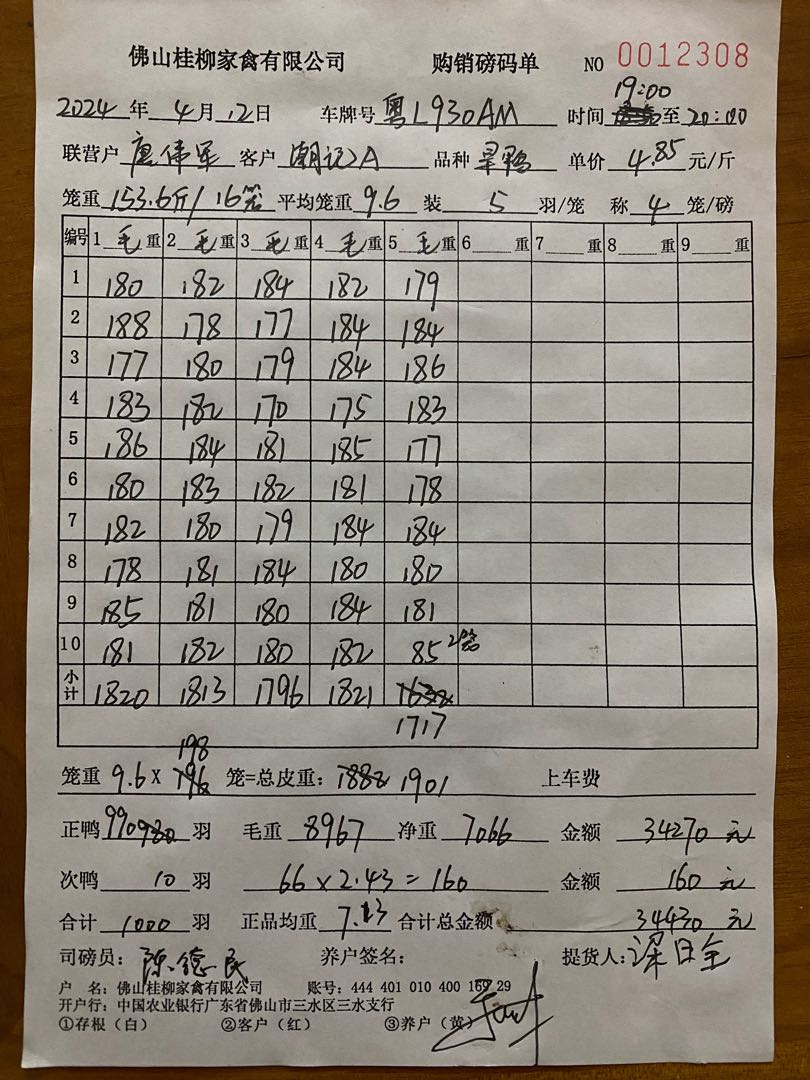 佛山桂柳家禽有限公司 购销磅码单 NO 0012308
2024 年 4 月 12 日 车牌号 粤L930AM 时间 19:00 至 20:00
联营户 唐伟军 客户 潮记2A 品种 旱鸭 单价 4.85 元/斤
笼重 153.6斤/16笼 平均笼重 9.6 装 5 羽/笼 称 4 笼/磅
编号 1 毛 重 2 毛 重 3 毛 重 4 毛 重 5 毛 重 6 重 7 重 8 重 9 重
1 180 182 184 182 179
2 188 178 177 184 184
3 177 180 179 184 186
4 183 182 170 175 183
5 186 184 181 185 177
6 180 183 182 181 178
7 182 180 179 184 184
8 178 181 184 180 180
9 185 181 180 184 181
10 181 182 180 182 85 2笼
小计 1820 1813 1796 1821 1632
1717
198
笼重 9.6 X 196 笼=总皮重: 1882 1901 上车费
正鸭 990 980 羽 毛重 8967 净重 7066 金额 34270 元
次鸭 10 羽 66 × 2.43 = 160 金额 160 元
合计 1000 羽 正品均重 7.13 合计总金额 34430 元
司磅员: 陈德民 养户签名: 提货人:
户 名: 佛山桂柳家禽有限公司 账号: 444 401 010 400 169 29
开户行: 中国农业银行广东省佛山市三水区三水支行
①存根(白) ②客户(红) ③养户(黄)